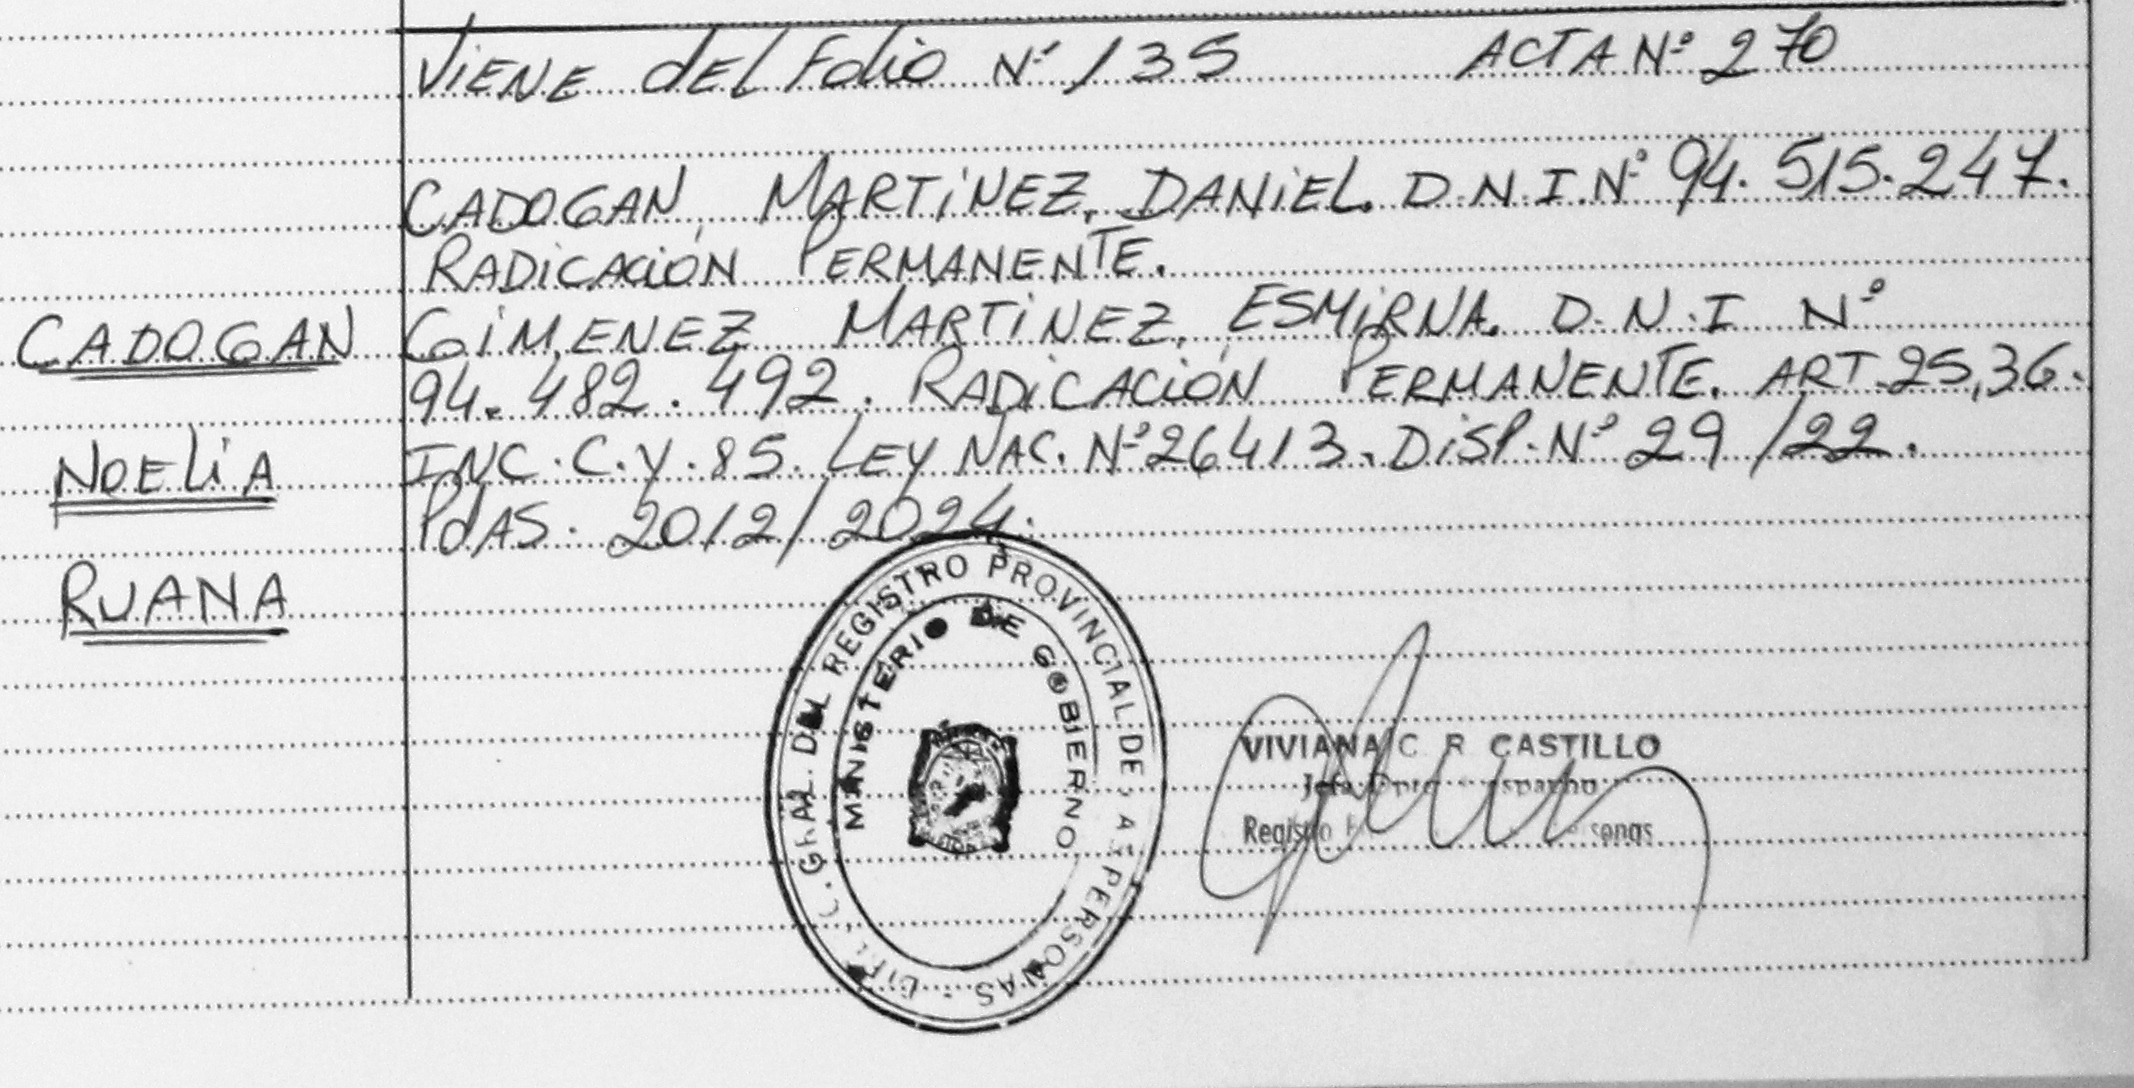 Viene del Folio Nº 135 ACTA Nº 270
CADOGAN, MARTiNEZ, DANiEL. D.N.I.Nº 94.515.247.
RADiCACiÓN PERMANENTE.
CADOGAN
GiMENEZ MARTiNEZ, ESMiRNA. D.N.I Nº
94.482.492. RADiCACiÓN PERMANENTE. ART.25,36.
NOELiA
INC.C.Y.85. LEY NAC. Nº26413. DiSP.Nº 29/22.
PdAS. 2012/2024.
RUANA
DEL REGISTRO PROVINCIAL DE PERSONAS
MINISTERIO DE GOBIERNO
VIVIANA C. R CASTILLO
Registro